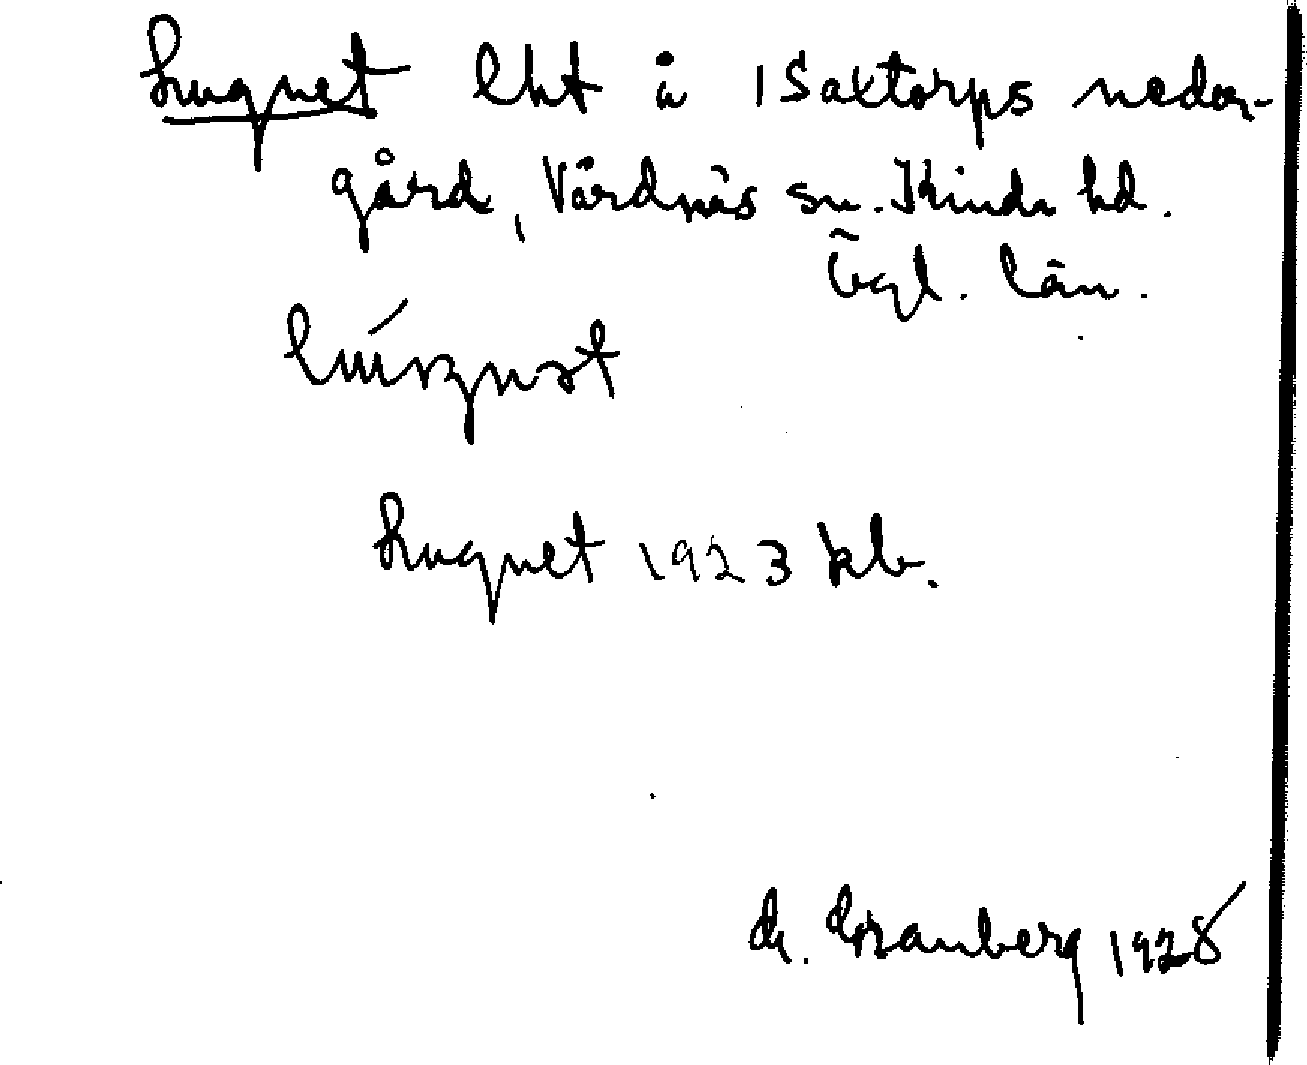 Lugnet lht å 1 Saxtorps nedar-
gård, Vårdnäs sn. Kinda hd.
Ögl. län.
Lugnet 1923 kb.
G. Granberg 1928